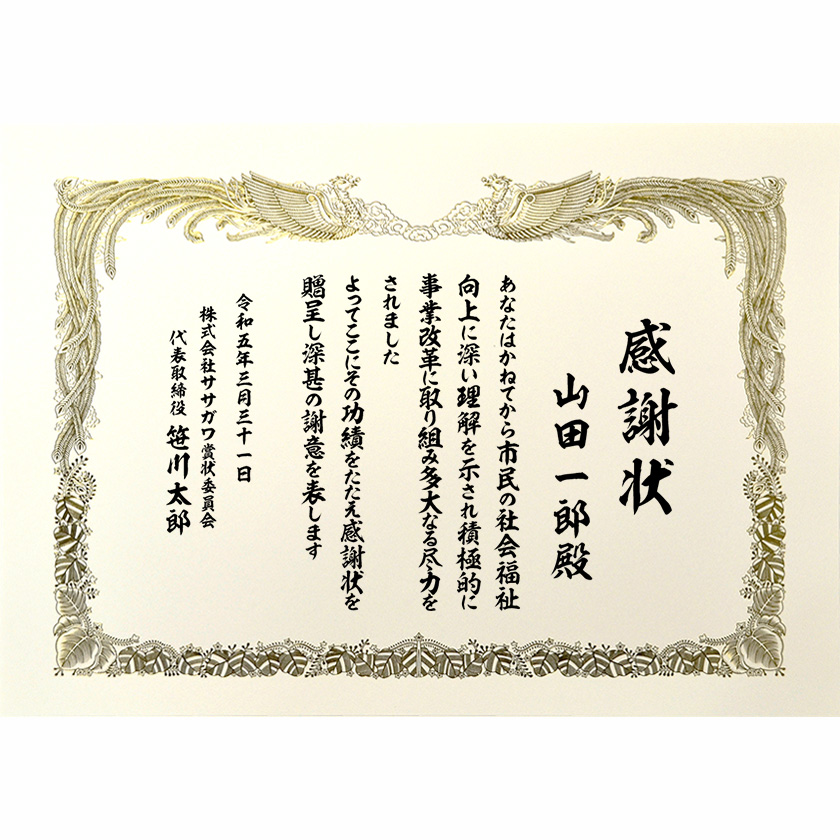 感謝状
山田一郎殿
あなたはかねてから市民の社会福祉
向上に深い理解を示され積極的に
事業改革に取り組み多大なる尽力を
されました
よってここにその功績をたたえ感謝状を
贈呈し深甚の謝意を表します
令和五年三月三十一日
株式会社ササガワ賞状委員会
代表取締役 笹川太郎